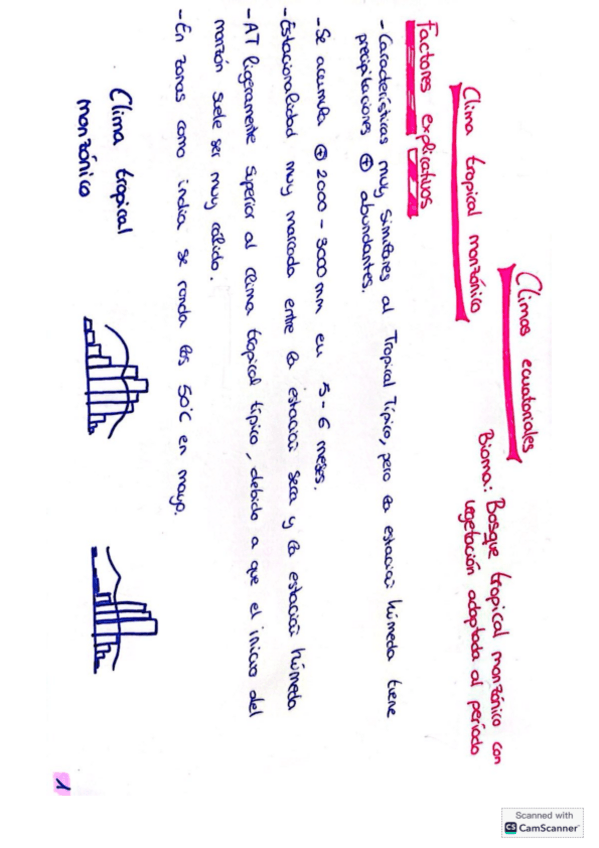 Climas ecuatoriales
Clima tropical monzónico
Bioma: Bosque tropical monzónico con
vegetación adaptada al período
Factores explicativos
- Características muy similares al Tropical Típico, pero la estación húmeda tiene
precipitaciones ⊕ abundantes.
- Se acumula ⊕ 2000 - 3000 mm en 5 - 6 meses.
- Estacionalidad muy marcada entre la estación seca y la estación húmeda
- AT ligeramente superior al clima tropical típico, debido a que el inicio del
monzón suele ser muy cálido.
- En zonas como india se ronda los 50°C en mayo.
Clima tropical
monzónico
1
Scanned with
CS CamScanner